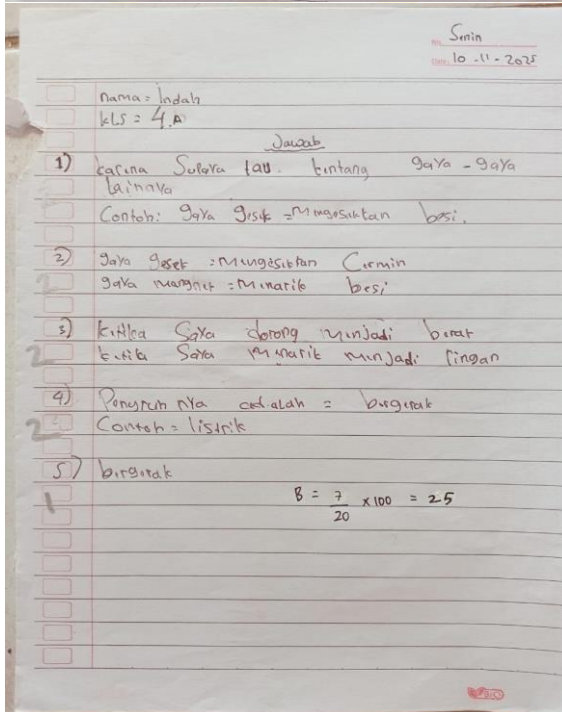 Senin
10-11-2025
nama = Indah
kls = 4.A
Jawab
1) karina Supaya tau tintang gaya-gaya
lainnya
Contoh: gaya gisik = Mngosiktan besi.
2) gaya gesek = Mungesiktan Cirmin
2 gaya mangnit = Minarik besi
3) kitika Saya dorong minjadi birat
2 kitika Saya minarik minjadi ringan
4) Pengaruh nya adalah = birgirak
2 Contoh = listrik
5) birgirak
1
B = 7/20 x100 = 25